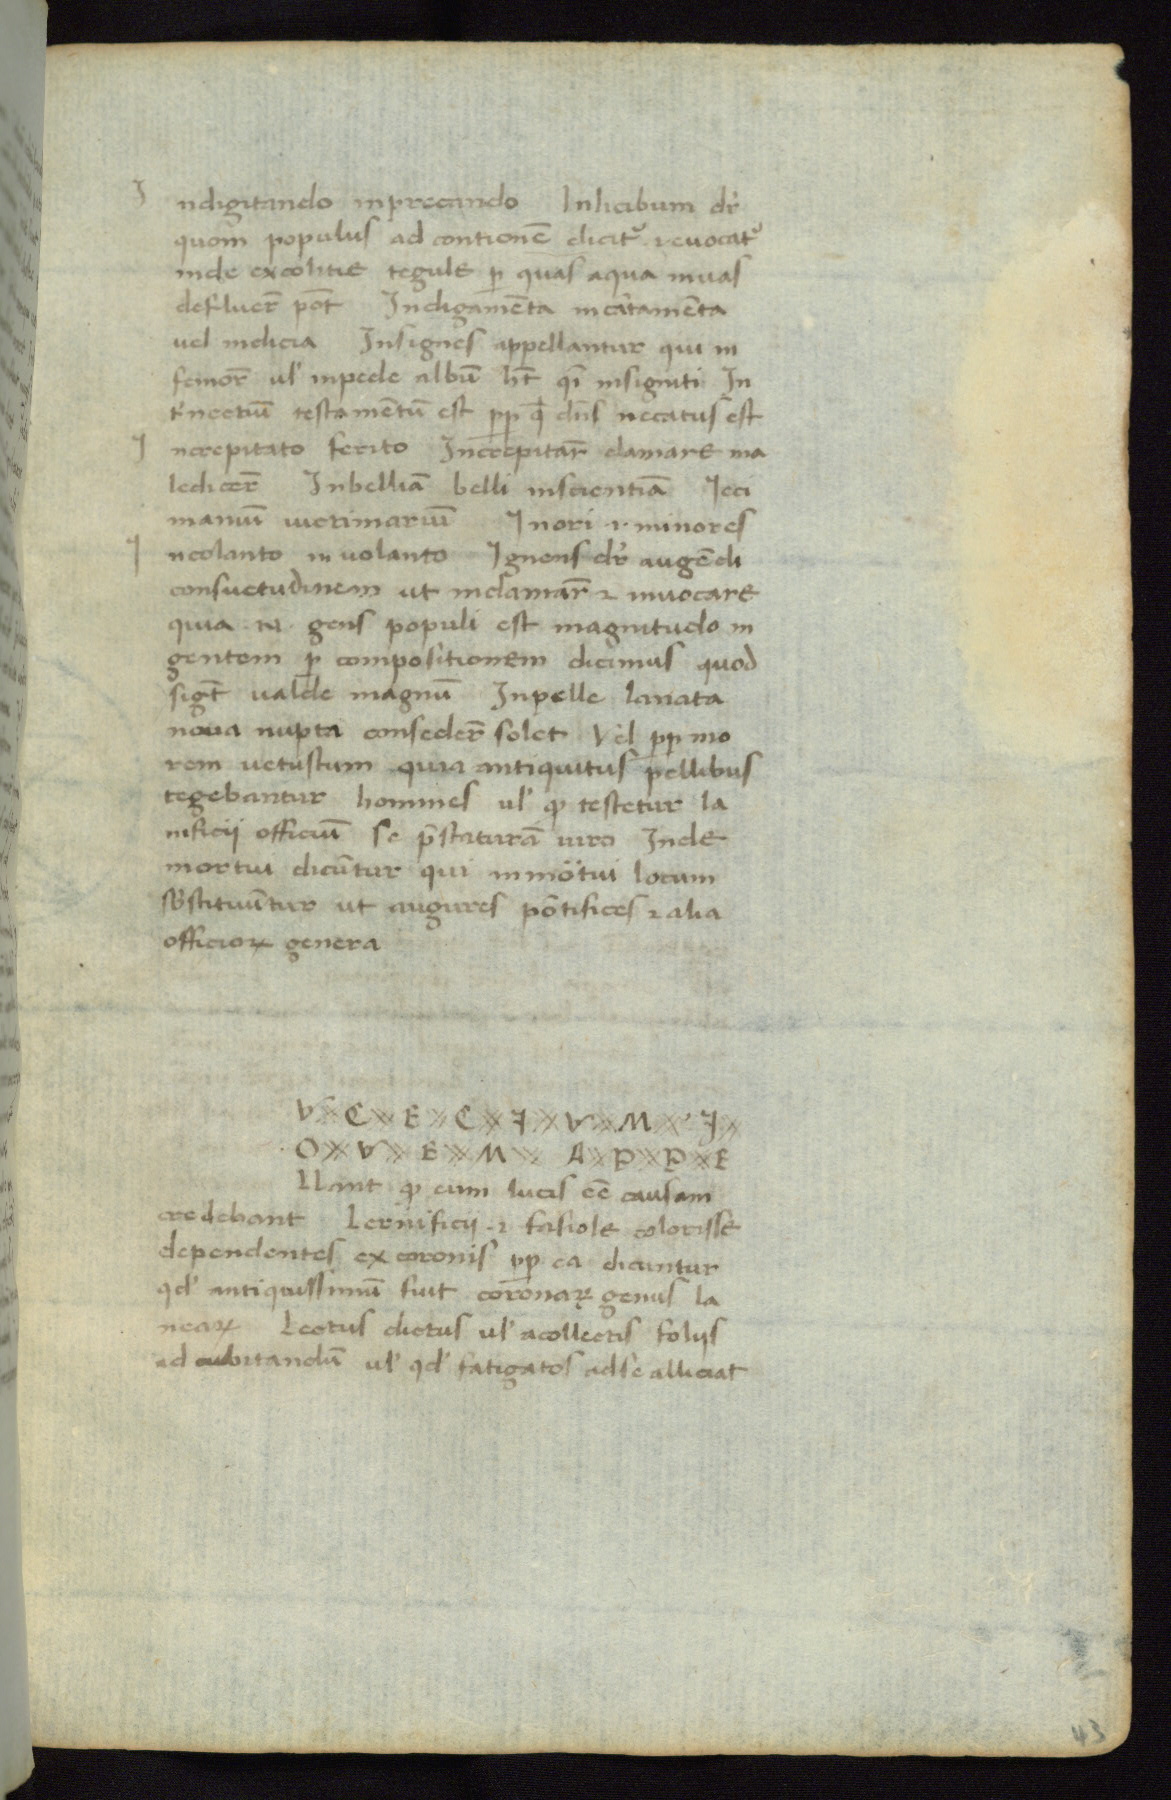 Indigitando inprecando Inlicibum dr̄
quom̄ populus ad contionē dicitᷣ ⁊ euocatᷣ
inde excolitie tegule ꝑ quas aqua inuas
defluer̄ pōt Indigamēta incitamēta
uel indicia Insignes appellantur qui in
femor̄ ul' inpede albū hn̄t qͥ insigniti In
tͥnectiū testamētū est ꝓp qͣ dn̄s necatus est
Increpitato ferito Increpitar̄ clamare ma
ledicer̄ Inbelliā belli inscientiā Jeci
manuū uictimariū Inori .i. minores
Incolanto inuolanto Ignens dr̄ augēdi
consuetudinem ut inclamar̄ ⁊ inuocare
quia .n. gens populi est magnitudo in
gentem ꝑ compositionem dicimus quod
sigt̄ ualde magnū Inpelle lanata
noua nupta conseder̄ solet Vel ꝓp mo
rem uetustum quia antiquitus pellibus
tegebantur homines ul' ꝙ testetur la
nificii officiū se p̄staturā uiro Inde
mortui dicūtur qui inmoͬtui locum
sb̄stituūtur ut augures pōtifices ⁊ alia
officioꝝ genera
V C E C I V M I
O V E M A P P E
Llant ꝙ eum lucis eē causam
credebant Lernificii ⁊ fasiole colorisse
dependentes ex coronis ꝓp ea dicuntur
qd' antiquissimū fuit coronaꝝ genus la
neaꝝ Lectus dictus ul' acollectis folijs
ad cubitandū ul' qd' fatigatos adse alliciat
43